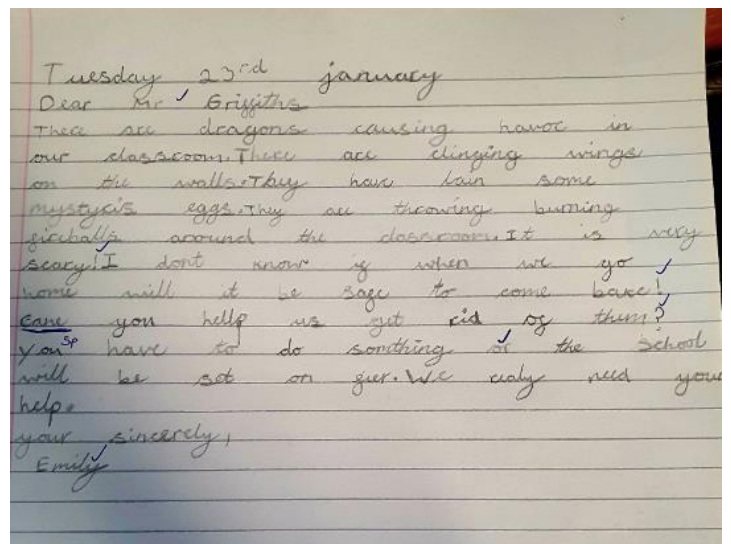 Tuesday 23rd january
Dear Mr Griffiths
There are dragons causing havoc in
our classroom. There are clinging wings
on the walls. They have lain some
mystycis eggs. They are throwing burning
fireballs around the classroom. It is very
scary! I dont know if when we go
home will it be safe to come bake!
cane you hellp us get rid of them?
you sp have to do somthing or the School
will be set on fier. We realy need your
help.
your sincerely,
Emily